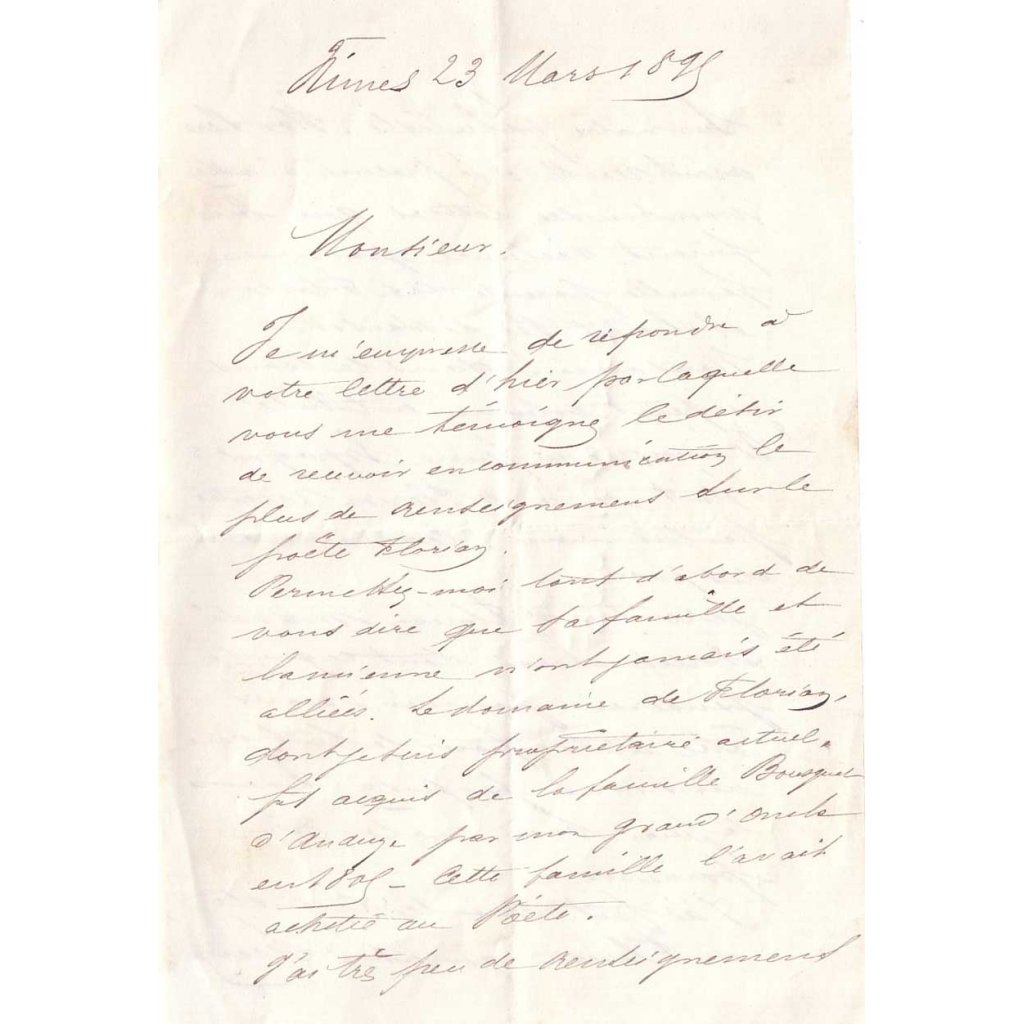 Nimes 23 Mars 1895
Monsieur.
Je m'empresse de répondre à
votre lettre d'hier par laquelle
vous me témoignez le désir
de recevoir en communication le
plus de renseignements sur le
poëte Florian.
Permettez-moi tout d'abord de
vous dire que sa famille et
la mienne n'ont jamais été
alliées. Le domaine de Florian,
dont je suis propriétaire actuel,
fut acquis de la famille Bousquet
d'Anduze par mon grand'oncle
en 1805 - Cette famille l'avait
acheté au Poëte.
J'ai très peu de renseignements